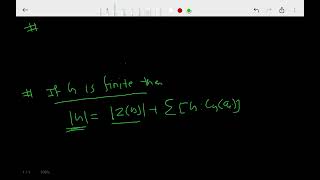 #
# If G is finite then
|G| = |Z(G)| + Σ [G : C_G(a_i)]